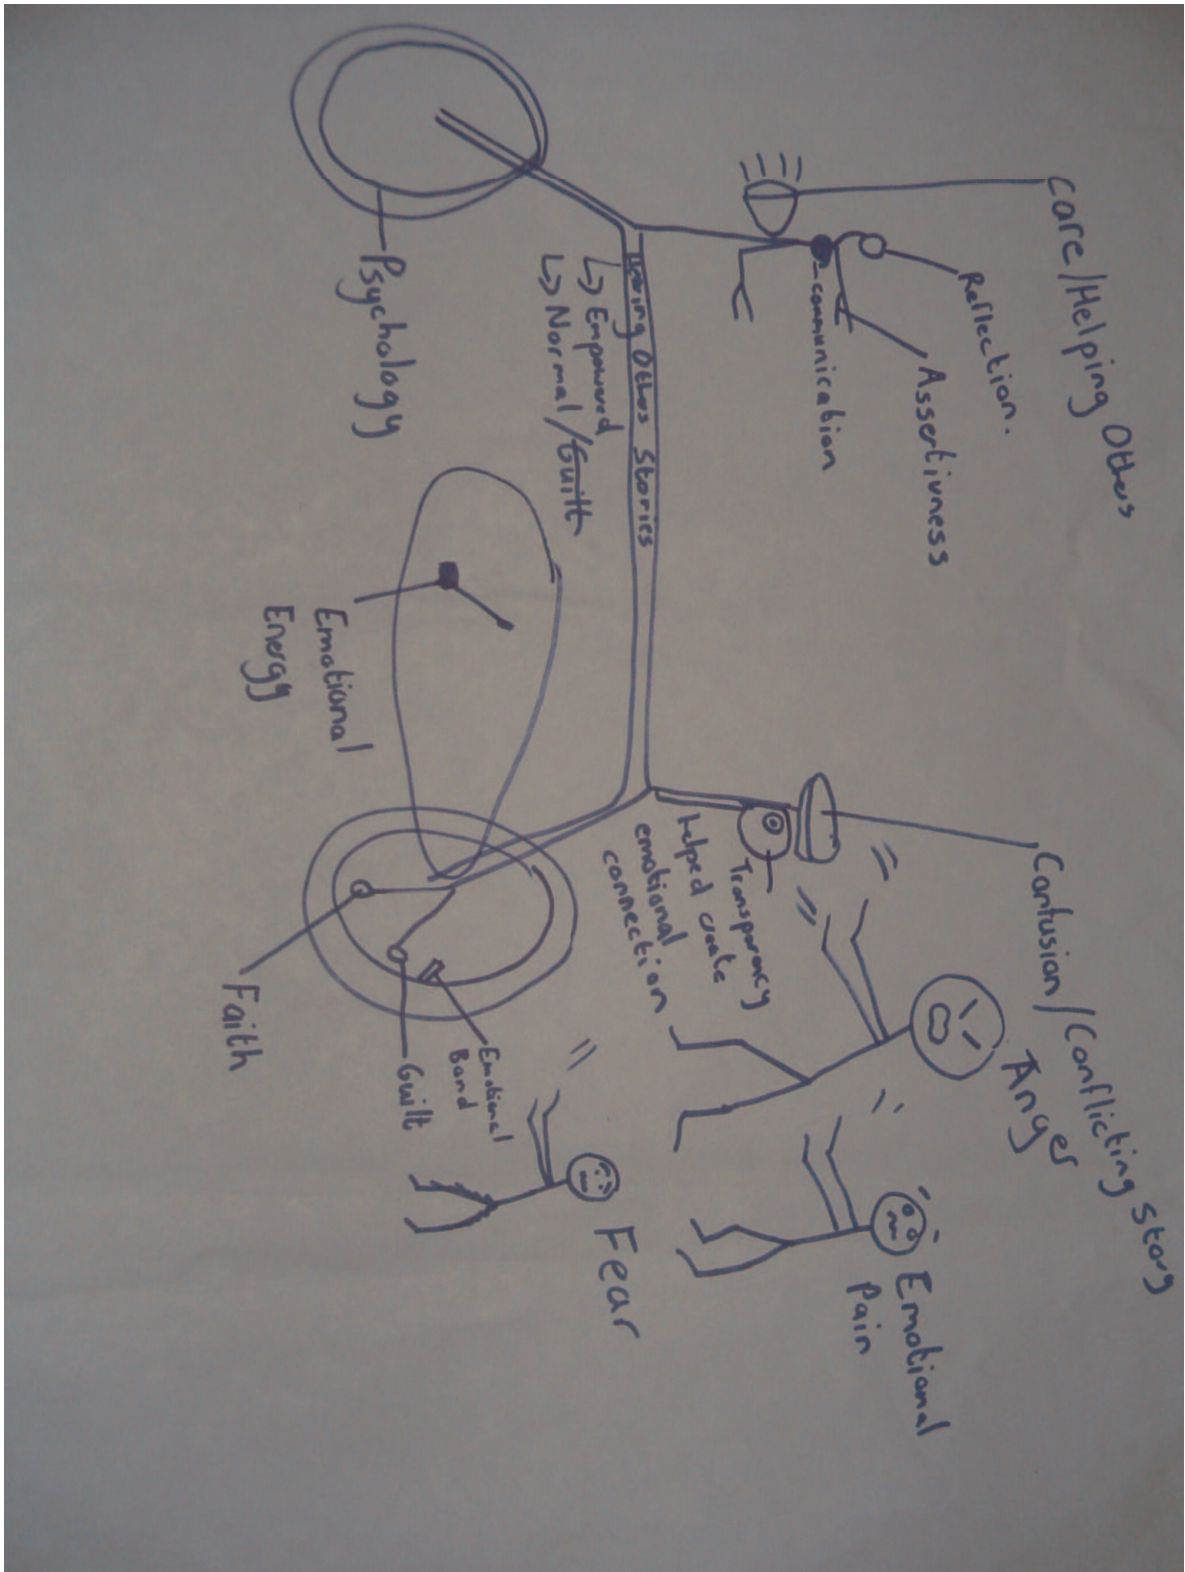 Care/Helping Others
Reflection.
Assertivness
communication
Hearing Others Stories
↳ Empowered
↳ Normal/Guilt
Psychology
Emotional
Energy
Confusion/Conflicting Story
Transparency
helped create
emotional
connection
Anger
Emotional
Pain
Fear
Emotional
Bond
Guilt
Faith